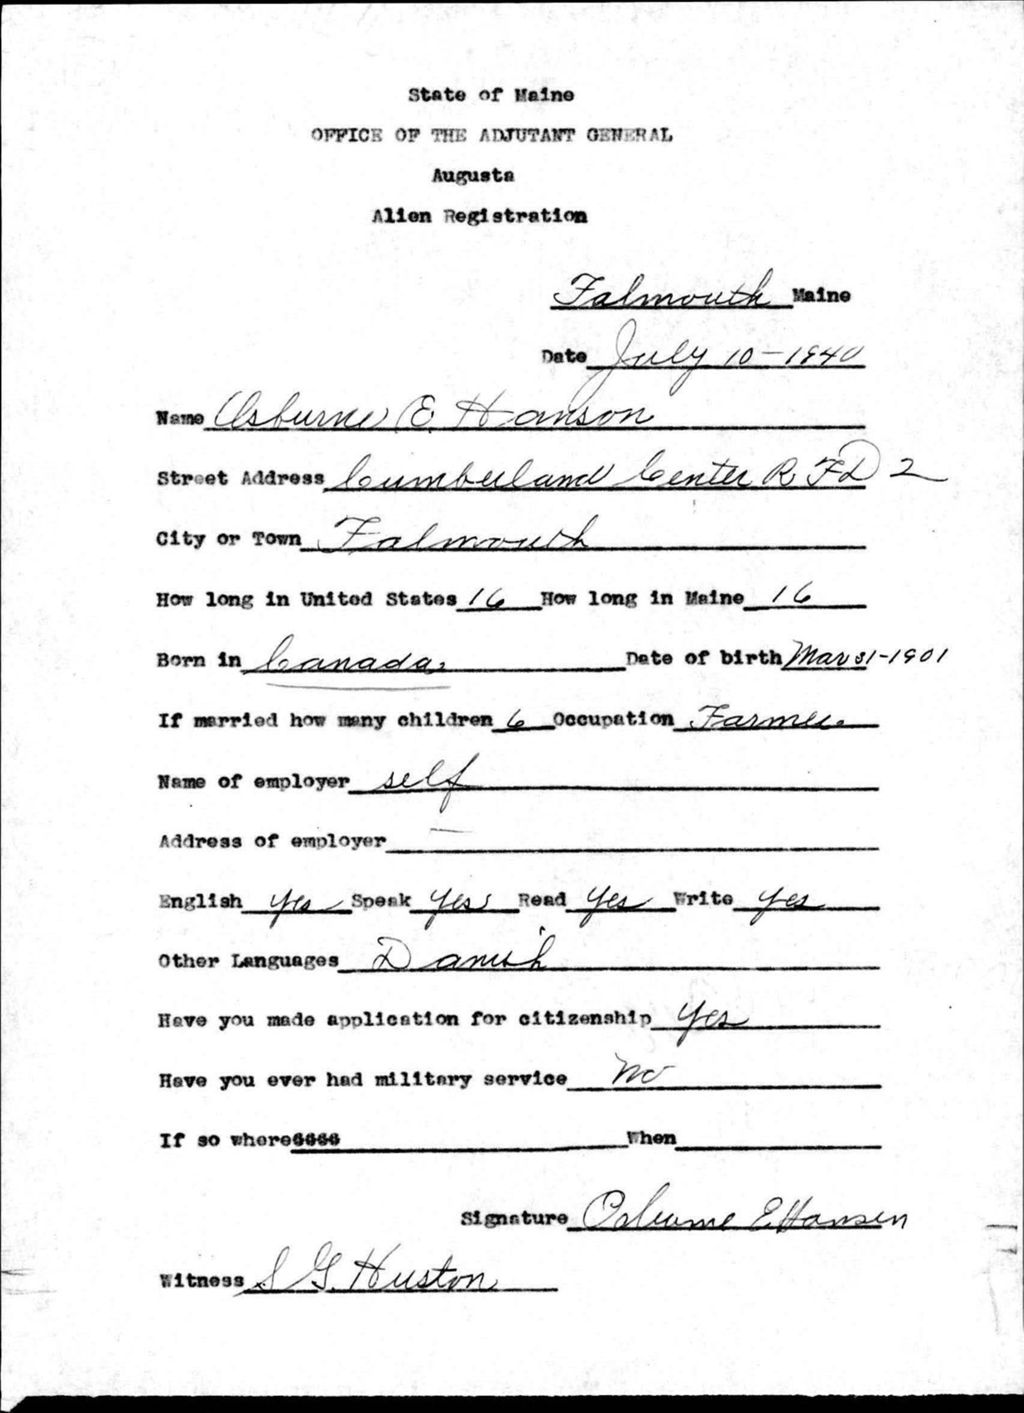 State of Maine
OFFICE OF THE ADJUTANT GENERAL
Augusta
Alien Registration
Falmouth Maine
Date July 10-1940
Name Osburne E. Hanson
Street Address Cumberland Center R FD 2
City or Town Falmouth
How long in United States 16 How long in Maine 16
Born in Canada Date of birth Mar 31-1901
If married how many children 6 Occupation Farmer
Name of employer self
Address of employer —
English Yes Speak Yes Read Yes Write Yes
Other Languages Danish
Have you made application for citizenship Yes
Have you ever had military service No
If so where When
Signature Osburne E Hansen
Witness S G. Huston